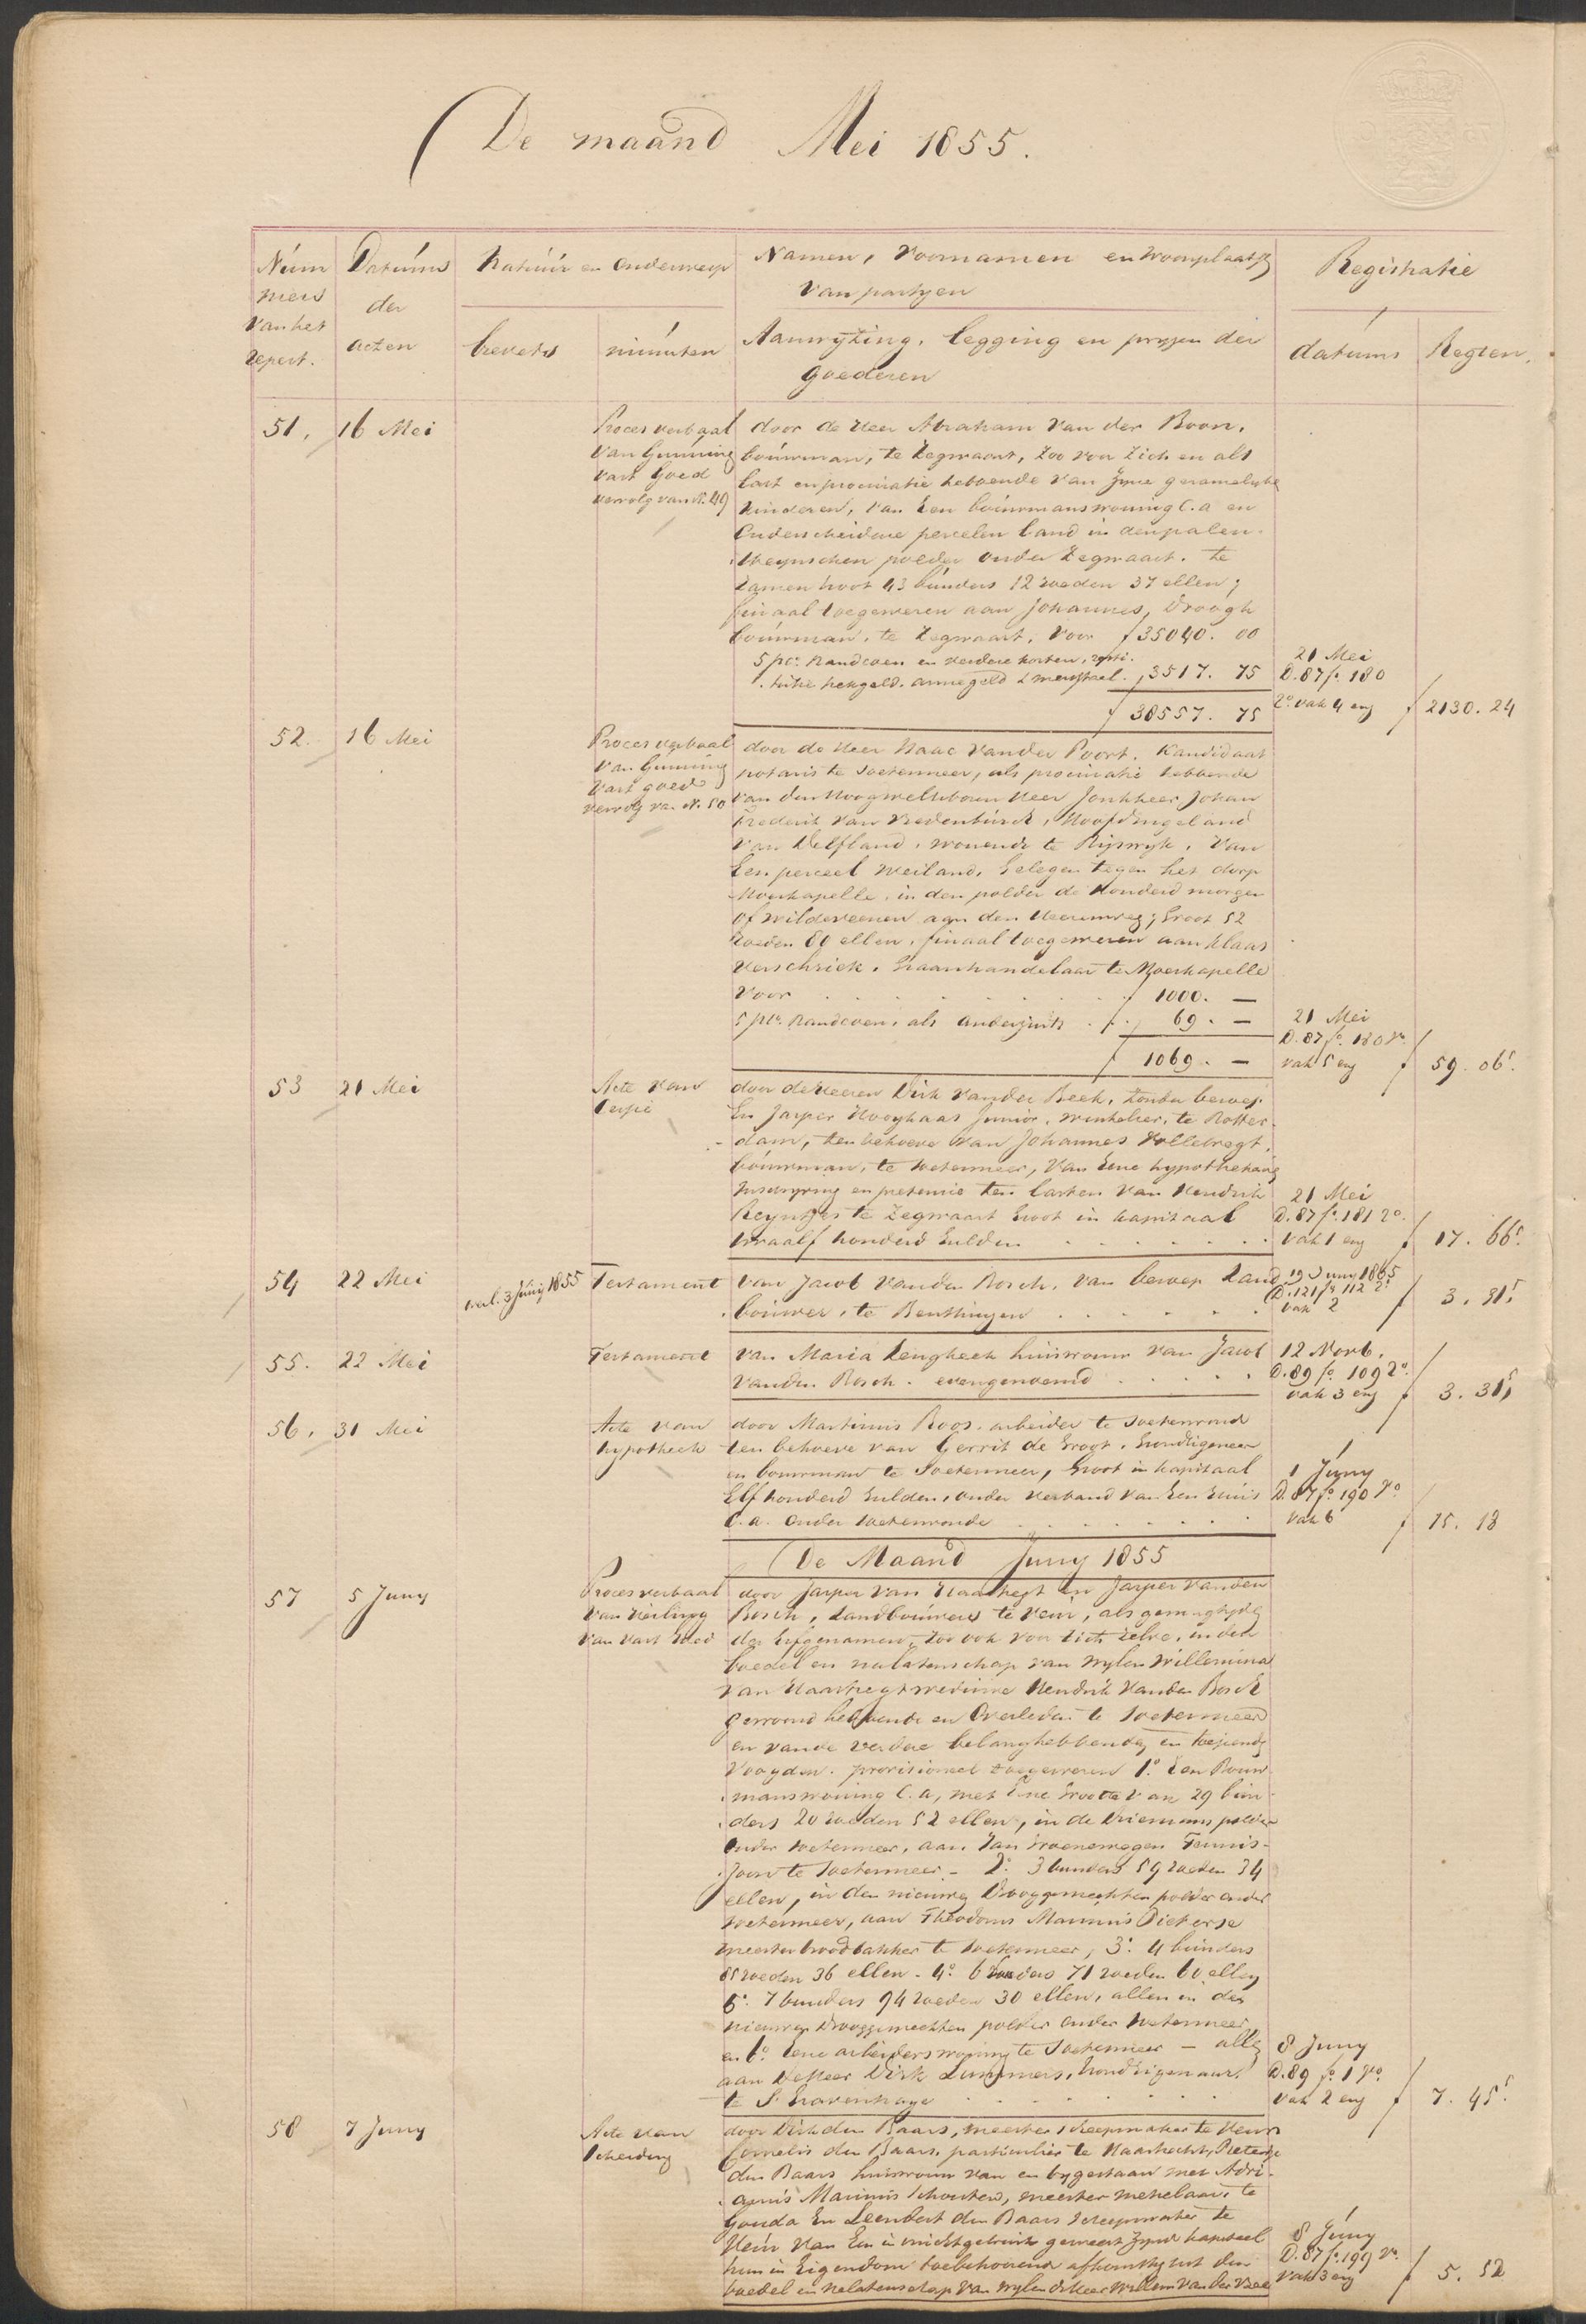 De maand Mei 1855.
Num
mers
van het
repert.
Datums
der
acten
Natuur en onderwerp
brevets
minuten
Namen, voornamen en woonplaats
van partyen
Aanwyzing, legging en pryzen der
goederen
Registratie
datums
Regten.
51. 16 Mei
Proces verbaal
van Gunning
vast Goed
vervolg van N. 49
door de Heer Abraham van der Boon,
bouwman, te Zegwaart, zoo voor zich en als
last en procuratie hebbende van zyne gezamelyke
kinderen, van Een bouwmanswoning c.a en
Onderscheidene percelen land in den palen-
steynschen polder onder Zegwaart. te
zamen groot 43 bunders 12 roeden 37 ellen;
finaal toegewezen aan Johannes Droogh
bouwman, te Zegwaart, voor f 35040. 00
5 pc. Randcoen en verdere kosten,
armegeld f 3517. 75
f 38557. 75
21 Mei
D. 87 f. 180
2o vak 4 eng f 2130. 24
52. 16 Mei
Proces verbaal
van Gunning
vast goed
vervolg van N. 50
door de Heer Isaac van der Poort, Kandidaat
notaris te Soetermeer, als procuratie hebbende
van den Hoogwelgeboren Heer Jonkheer Johan
Frederik van Vredenburch, Hoofdingeland
van Delfland, wonende te Rijswijk, van
Een perceel weiland, Gelegen tegen het dorp
Moerkapelle, in den polder de Honderd morgen
of wildeveenen aan den Heerenweg; Groot 52
roeden 80 ellen, finaal toegewezen aan Klaas
Verschriek, Graanhandelaar te Moerkapelle
voor f 1000. —
5 pc. Randcoen, als anderzints f 69. —
f 1069. —
21 Mei
D. 87 fo. 180 vo.
vak 5 eng f 59. 06 5.
53 21 Mei
Acte van
Cessie
door de Heeren Dirk van der Beek, zonder beroep
En Jasper Hooghaas Junior, winkelier, te Rotter-
dam, ten behoeve van Johannes Vollebregt,
bouwman, te Soetermeer, van Eene hypothekaire
Inschryving en pretensie ten lasten van Hendrik
Reyntjes te Zegwaart Groot in kapitaal
twaalf honderd Gulden
21 Mei
D. 87 fo. 181 vo.
vak 1 eng f 17. 66 5.
54 22 Mei
overl. 3 Juny 1855
Testament
van Jacob van den Bosch, van beroep Land-
bouwer, te Benthuizen
19 Juny 1865
D. 121 fo 112 vo
vak 2 f 3. 81 5.
55. 22 Mei
Testament
van Maria Lengkeek huisvrouw van Jacob
van den Bosch. evengenoemd
12 Novb.
D. 89 fo. 109 vo.
vak 3 eng f 3. 31 5
56. 31 Mei
Acte van
hypotheek
door Martinus Roos, arbeider te Soeterwoud
ten behoeve van Gerrit de Groot, Grondeigenaar
en bouwman te Soetermeer, Groot in kapitaal
Elf honderd Gulden, onder verband van Een Huis
c.a. onder Soeterwoude
1 Juny
D. 87 fo. 190 vo
vak 6 f 15. 18
De Maand Juny 1855
57 5 Juny
Proces verbaal
van Veiling
van vast Goed
door Jasper van Haastregt en Jasper van den
Bosch, Landbouwers te Veur, als gemagtigden
der Erfgenamen, zoo ook voor zich zelve, in den
boedel en nalatenschap van wylen Willemina
van Haastregt weduwe Hendrik van den Bosch
gewoond hebbende en Overleden te Soetermeer
en van de verdere belanghebbenden en toeziende
Voogden. provisioneel toegewezen 1o. Een Bouw-
manswoning c.a, met Eene Grootte van 29 bun-
ders 20 roeden 52 ellen, in de Driemans polder
onder Soetermeer, aan Jan Groenewegen Teunis-
zoon te Soetermeer - 2o. 3 bunders 59 roeden 34
ellen, in den nieuwe Drooggemaakten polder onder
Soetermeer, aan Theodorus Marinus Pieterse
meester broodbakker te Soetermeer, 3o. 4 bunders
85 roeden 36 ellen - 4o. 6 bunders 71 roeden 60 ellen
5o. 7 bunders 94 roeden 30 ellen, allen in den
nieuwen Drooggemaakten polder onder Soetermeer
en 6o. Eene arbeiderswoning te Soetermeer - alles
aan de Heer Dirk Lammers, Grondeigenaar,
te S' Gravenhage
8 Juny
D. 89 fo. 1 vo.
vak 2 eng f 7. 45 5.
58 7 Juny
Acte van
Scheiding
door Dirk den Baars, meester scheepmaker te Veur
Cornelis den Baars, particulier te Haastrecht, Pieterje
den Baars huisvrouw van en bygestaan met Adri-
anus Marinus Schouten, meester metselaar, te
Gouda En Leendert den Baars Scheepmaker te
Veur van Een in vruchtgebruik geweest zynde kapitaal
hun in Eigendom toebehoorend afkomstig uit den
boedel en nalatenschap van wylen de Heer Willem van der
8 Juny
D. 87 fo. 199 vo.
vak 3 eng f 5. 52